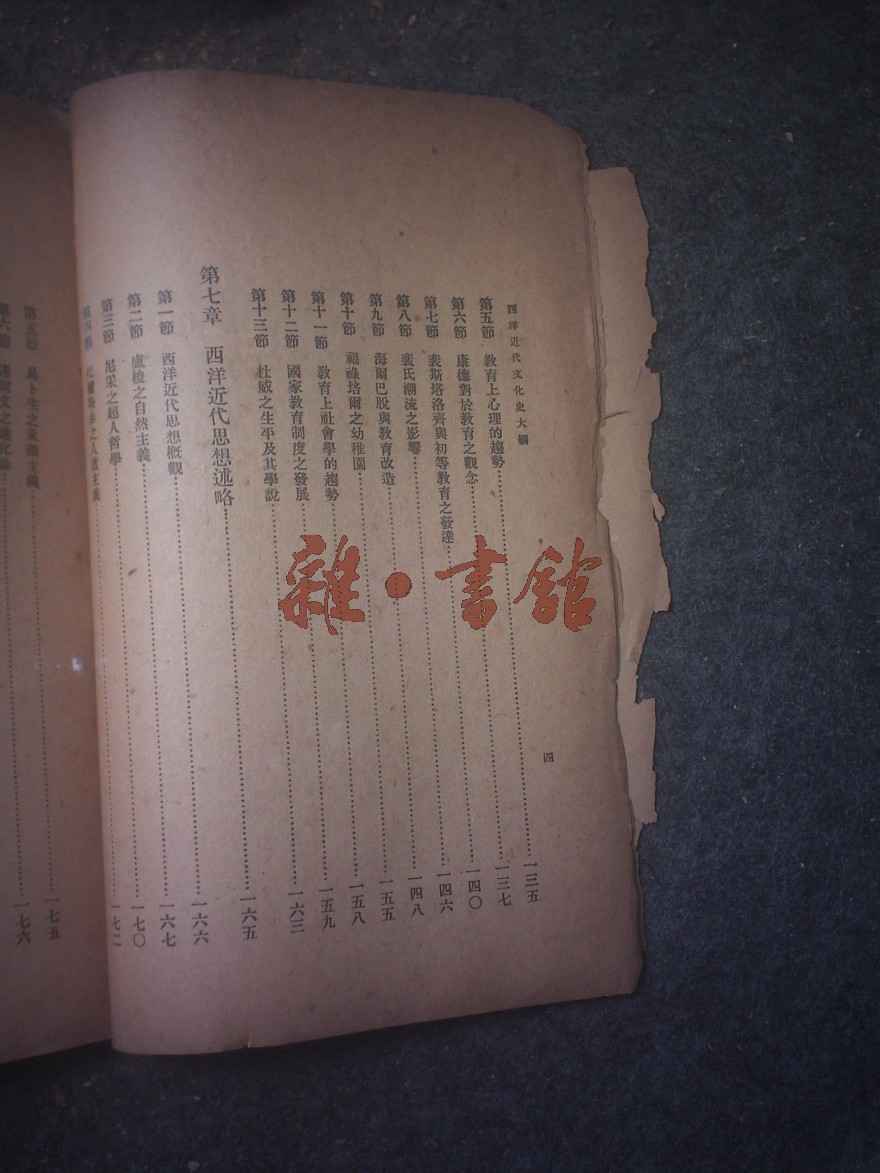 西洋近代文化史大綱
第五節 教育上心理的趨勢 一三五
第六節 康德對於教育之觀念 一三七
第七節 裴斯塔洛齊與初等教育之發達 一四〇
第八節 裴氏潮流之影響 一四六
第九節 海爾巴脫與教育改造 一四八
第十節 福祿培爾之幼稚園 一五五
第十一節 教育上社會學的趨勢 一五八
第十二節 國家教育制度之發展 一五九
第十三節 杜威之生平及其學說 一六三
第七章 西洋近代思想述略 一六五
第一節 西洋近代思想概觀 一六六
第二節 盧梭之自然主義 一六七
第三節 尼采之超人哲學 一七〇
第四節 之人道主義 一七二
四
第五節 易卜生之象徵主義 一七五
第六節 之進化論 一七六
雜·書館